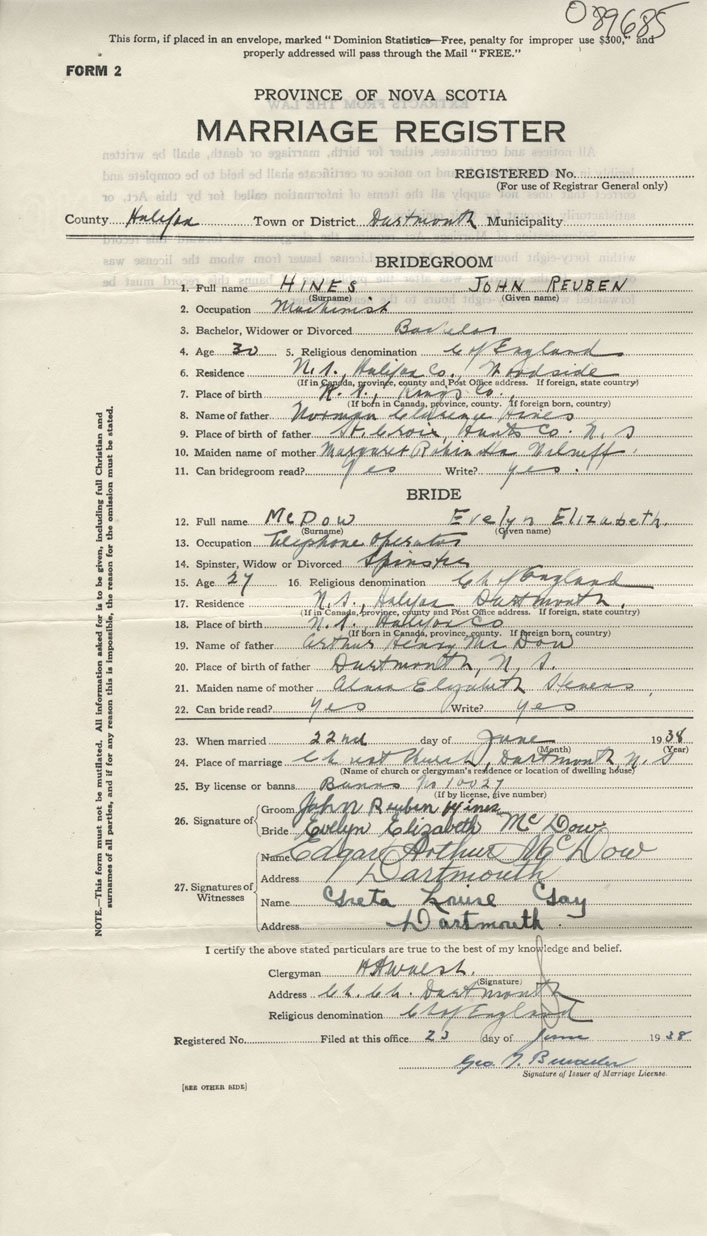 089685
This form, if placed in an envelope, marked "Dominion Statistics—Free, penalty for improper use $300," and
properly addressed will pass through the Mail "FREE."
FORM 2
PROVINCE OF NOVA SCOTIA
MARRIAGE REGISTER
REGISTERED No.
(For use of Registrar General only)
County Halifax Town or District Dartmouth Municipality
BRIDEGROOM
1. Full name HINES JOHN REUBEN
(Surname) (Given name)
2. Occupation Machinist
3. Bachelor, Widower or Divorced Bachelor
4. Age 30 5. Religious denomination C of England
6. Residence N.S., Halifax Co., Woodside
(If in Canada, province, county and Post Office address. If foreign, state country)
7. Place of birth N.S., Kings Co.
(If born in Canada, province, county. If foreign born, country)
8. Name of father Norman Hines
9. Place of birth of father St. Croix, Hants Co. N.S
10. Maiden name of mother Margaret
11. Can bridegroom read? Yes Write? yes.
BRIDE
12. Full name McDow Evelyn Elizabeth.
(Surname) (Given name)
13. Occupation Telephone operator
14. Spinster, Widow or Divorced Spinster
15. Age 27 16. Religious denomination Ch of England
17. Residence N.S., Halifax Dartmouth,
(If in Canada, province, county and Post Office address. If foreign, state country)
18. Place of birth N.S. Halifax Co
(If born in Canada, province, county. If foreign born, country)
19. Name of father Arthur Henry McDow
20. Place of birth of father Dartmouth, N.S.
21. Maiden name of mother Elizabeth Stevens,
22. Can bride read? yes Write? yes
23. When married 22nd day of June 1938
(Month) (Year)
24. Place of marriage Christ Church, Dartmouth N.S
(Name of church or clergyman's residence or location of dwelling house)
25. By license or banns Banns No 10027
(If by license, give number)
26. Signature of
Groom John Reuben Hines
Bride Evelyn Elizabeth McDow
27. Signatures of Witnesses
Name Edgar Arthur McDow
Address Dartmouth
Name Greta Louise Gay
Address Dartmouth.
I certify the above stated particulars are true to the best of my knowledge and belief.
Clergyman Walsh.
(Signature)
Address Ch. Ch. Dartmouth
Religious denomination Ch of England
Registered No. Filed at this office 23 day of June 1938
Geo
Signature of Issuer of Marriage License.
[SEE OTHER SIDE]
NOTE.—This form must not be mutilated. All information asked for is to be given, including full Christian and
surnames of all parties, and if for any reason this is impossible, the reason for the omission must be stated.